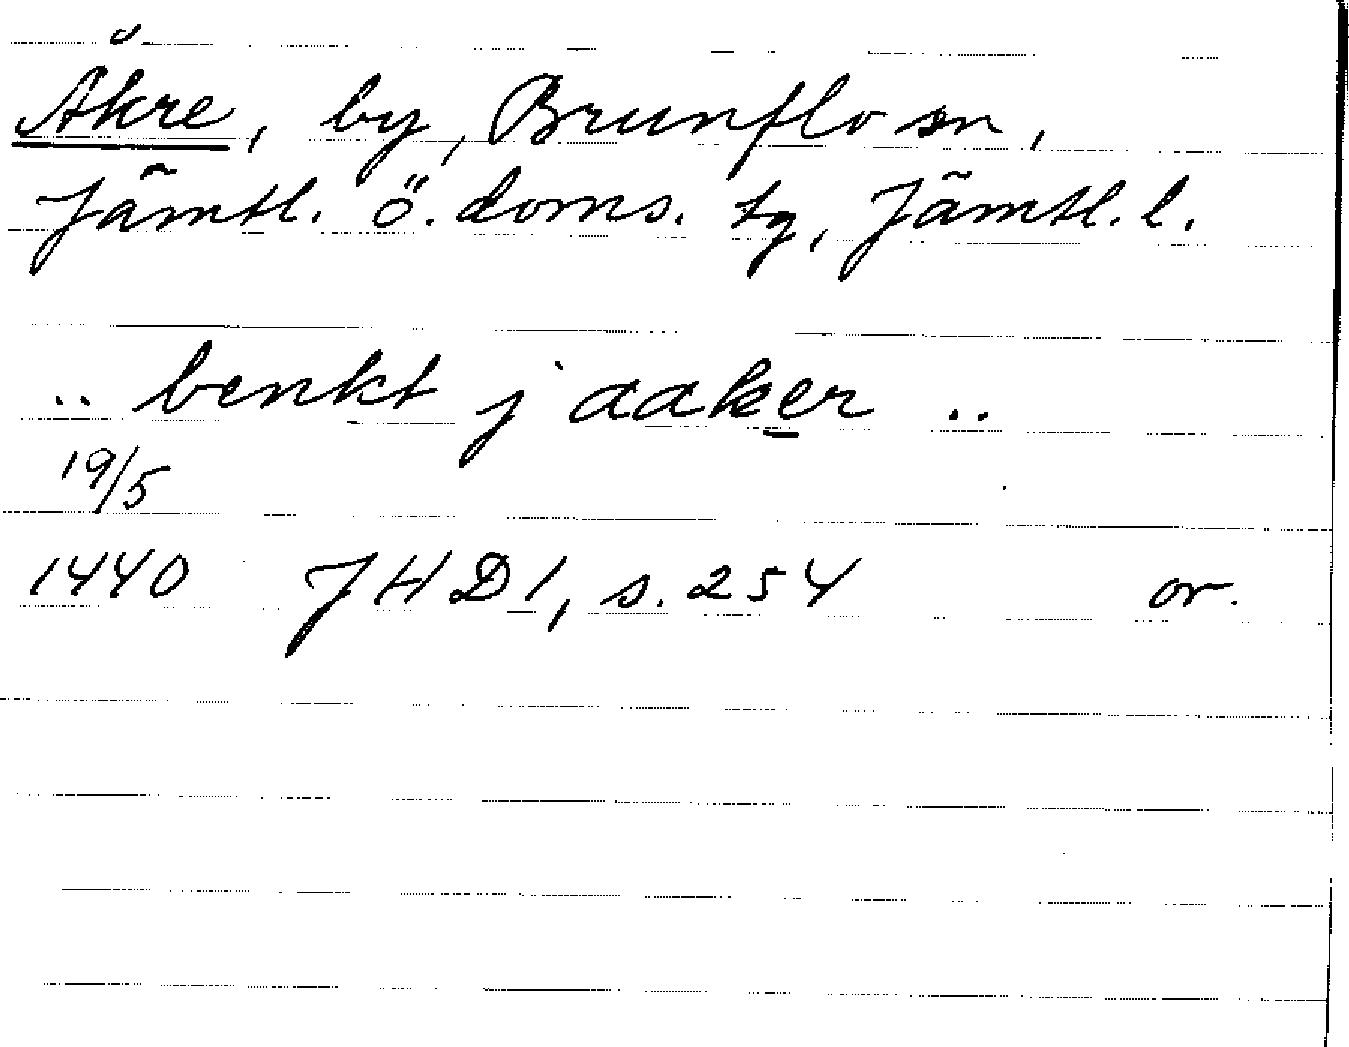 Åkre, by, Brunflo sn,
Jämtl. ö. doms. tg, Jämtl. l.
.. benkt j aaker ..
19/5
1440 JHD 1, s. 254 or.